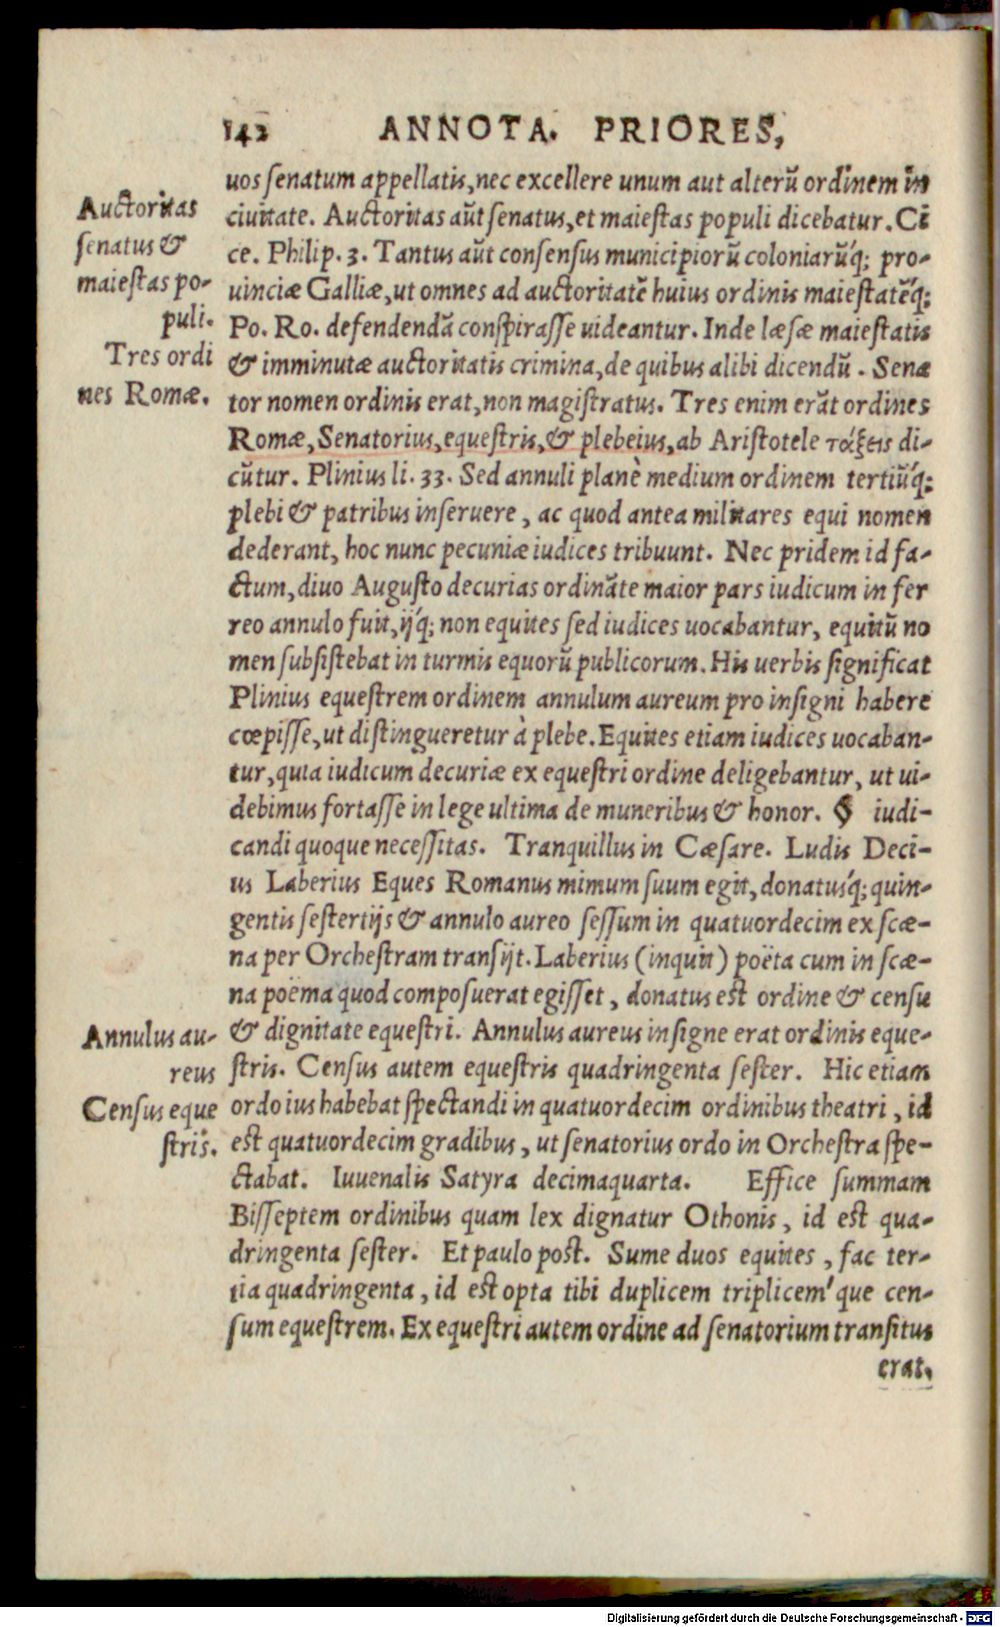 142 ANNOTA. PRIORES,
uos senatum appellatis, nec excellere unum aut alterũ ordinem in
ciuitate. Auctoritas aũt senatus, et maiestas populi dicebatur. Ci
ce. Philip. 3. Tantus aũt consensus municipiorũ coloniarũq́; pro-
uinciæ Galliæ, ut omnes ad auctoritatẽ huius ordinis maiestatẽq́;
Po. Ro. defendendã conspirasse uideantur. Inde læsæ maiestatis
& imminutæ auctoritatis crimina, de quibus alibi dicendũ. Sena
tor nomen ordinis erat, non magistratus. Tres enim erãt ordines
Romæ, Senatorius, equestris, & plebeius, ab Aristotele τάξεις di-
cũtur. Plinius li. 33. Sed annuli planè medium ordinem tertiũq́;
plebi & patribus inseruere, ac quod antea militares equi nomen
dederant, hoc nunc pecuniæ iudices tribuunt. Nec pridem id fa-
ctum, diuo Augusto decurias ordinãte maior pars iudicum in fer
reo annulo fuit, ijq́; non equites sed iudices uocabantur, equitũ no
men subsistebat in turmis equorũ publicorum. His uerbis significat
Plinius equestrem ordinem annulum aureum pro insigni habere
cœpisse, ut distingueretur à plebe. Equites etiam iudices uocaban-
tur, quia iudicum decuriæ ex equestri ordine deligebantur, ut ui-
debimus fortasse in lege ultima de muneribus & honor. § iudi-
candi quoque necessitas. Tranquillus in Cæsare. Ludis Deci-
us Laberius Eques Romanus mimum suum egit, donatusq́; quin-
gentis sestertijs & annulo aureo sessum in quatuordecim ex scæ-
na per Orchestram transijt. Laberius (inquit) poëta cum in scæ-
na poëma quod composuerat egisset, donatus est ordine & censu
& dignitate equestri. Annulus aureus insigne erat ordinis eque-
stris. Census autem equestris quadringenta sester. Hic etiam
ordo ius habebat spectandi in quatuordecim ordinibus theatri, id
est quatuordecim gradibus, ut senatorius ordo in Orchestra spe-
ctabat. Iuuenalis Satyra decimaquarta. Effice summam
Bisseptem ordinibus quam lex dignatur Othonis, id est qua-
dringenta sester. Et paulo post. Sume duos equites, fac ter-
tia quadringenta, id est opta tibi duplicem triplicem'que cen-
sum equestrem. Ex equestri autem ordine ad senatorium transitus
erat.
Auctoritas
senatus &
maiestas po-
puli.
Tres ordi
nes Romæ.
Annulus au-
reus
Census eque
stris.
Digitalisierung gefördert durch die Deutsche Forschungsgemeinschaft - DFG